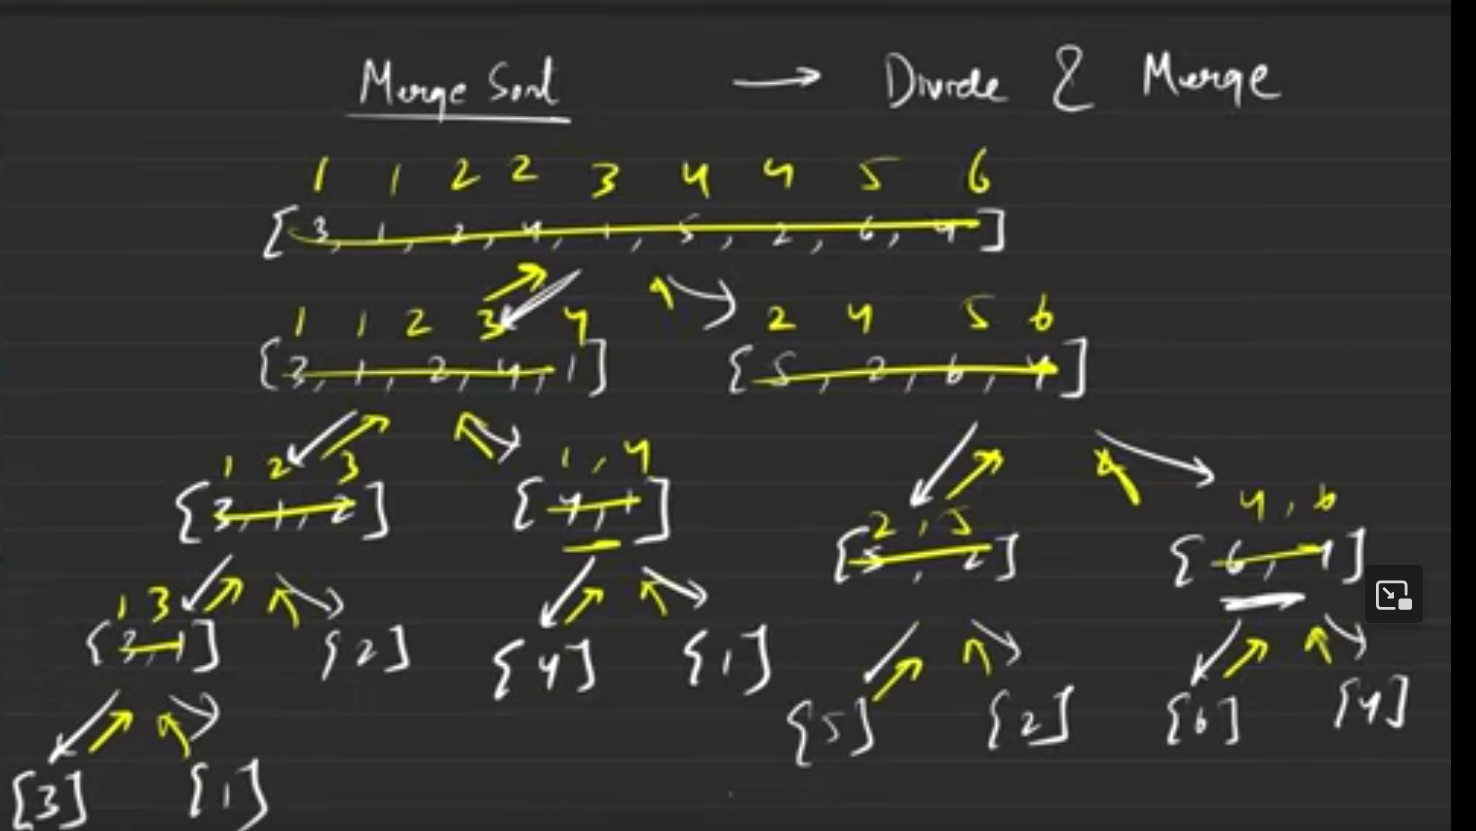 Merge Sort → Divide & Merge
1 1 2 2 3 4 4 5 6
[3, 1, 2, 4, 1, 5, 2, 6, 4]
1 1 2 3 4 2 4 5 6
[3, 1, 2, 4, 1] [5, 2, 6, 4]
1 2 3 1, 4 2, 5 4, 6
[3, 1, 2] [4, 1] [5, 2] [6, 4]
1 3
[3, 1] [2] [4] [1] [5] [2] [6] [4]
[3] [1]